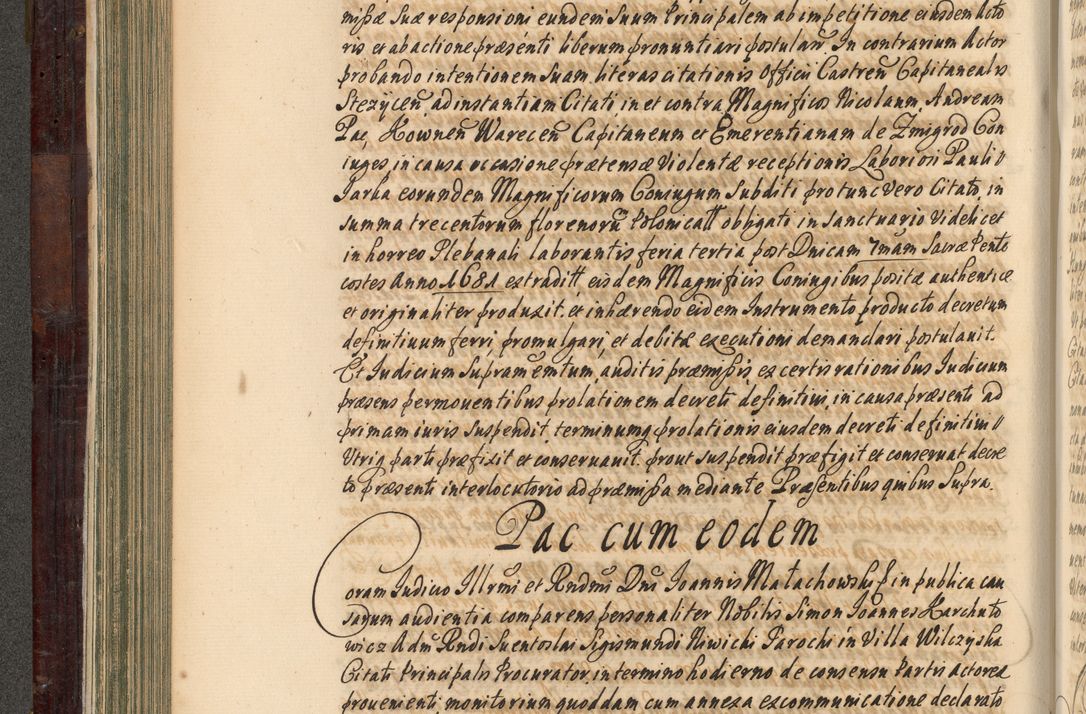 missæ suæ responsioni eundem suum Principalem ab impetitione eiusdem Acto
ris et ab actione præsenti liberum pronuntiari postulavit. In contrarium Actor
probando intentionem suam literas citationis Officii Castren Capitanealis
Stezycen, ad instantiam Citati in et contra Magnificos Nicolaum, Andream
Pac, Kownen Warecen Capitaneum et Emerentianam de Zmigrod Con
iuges in causa occasione prætensæ violentæ receptionis Laboriosi Pauli
Jarka eorundem Magnificorum Coniugum Subditi pro tunc vero Citato, in
summa trecentorum florenorum Polonicall obligati in sanctuario videlicet
in horreo Plebanali laborantis feria tertia post Dnicam 7mam Sacræ Pente
costes Anno 1681 extraditt eisdem Magnificis Coniugibus positæ authenticæ
et originaliter produxit, et inhærendo eidem Instrumento producto decretum
definitiuum ferri, promulgari, et debitæ executioni demandari postulauit.
Et Judicium Supramemtum, auditis præmissis ex certis rationibus Judicium
præsens permouentibus prolationem decreti definitiui, in causa præsenti ad
primam iuris suspendit, terminumq prolationis eiusdem decreti definitiui
Utriq parti præfixit et conseruauit. prout suspendit præfigit et conseruat decre
to præsenti interlocutorio ad præmissa mediante Præsentibus quibus Supra.
Pac cum eodem
Coram Judicio Illrmi et Rndmi Dni Joannis Małachowski in publica cau
sarum audientia comparens personaliter Nobilis Simon Joannes Karchuto
wicz Adm Rndi Suentoslai Sigismundi Niwicki Parochi in Villa Wilczyska
Citati Principalis Procurator, in termino hodierno de consensu Partis actoreæ
proueniente, monitorium quoddam cum annexa excommunicatione declarato